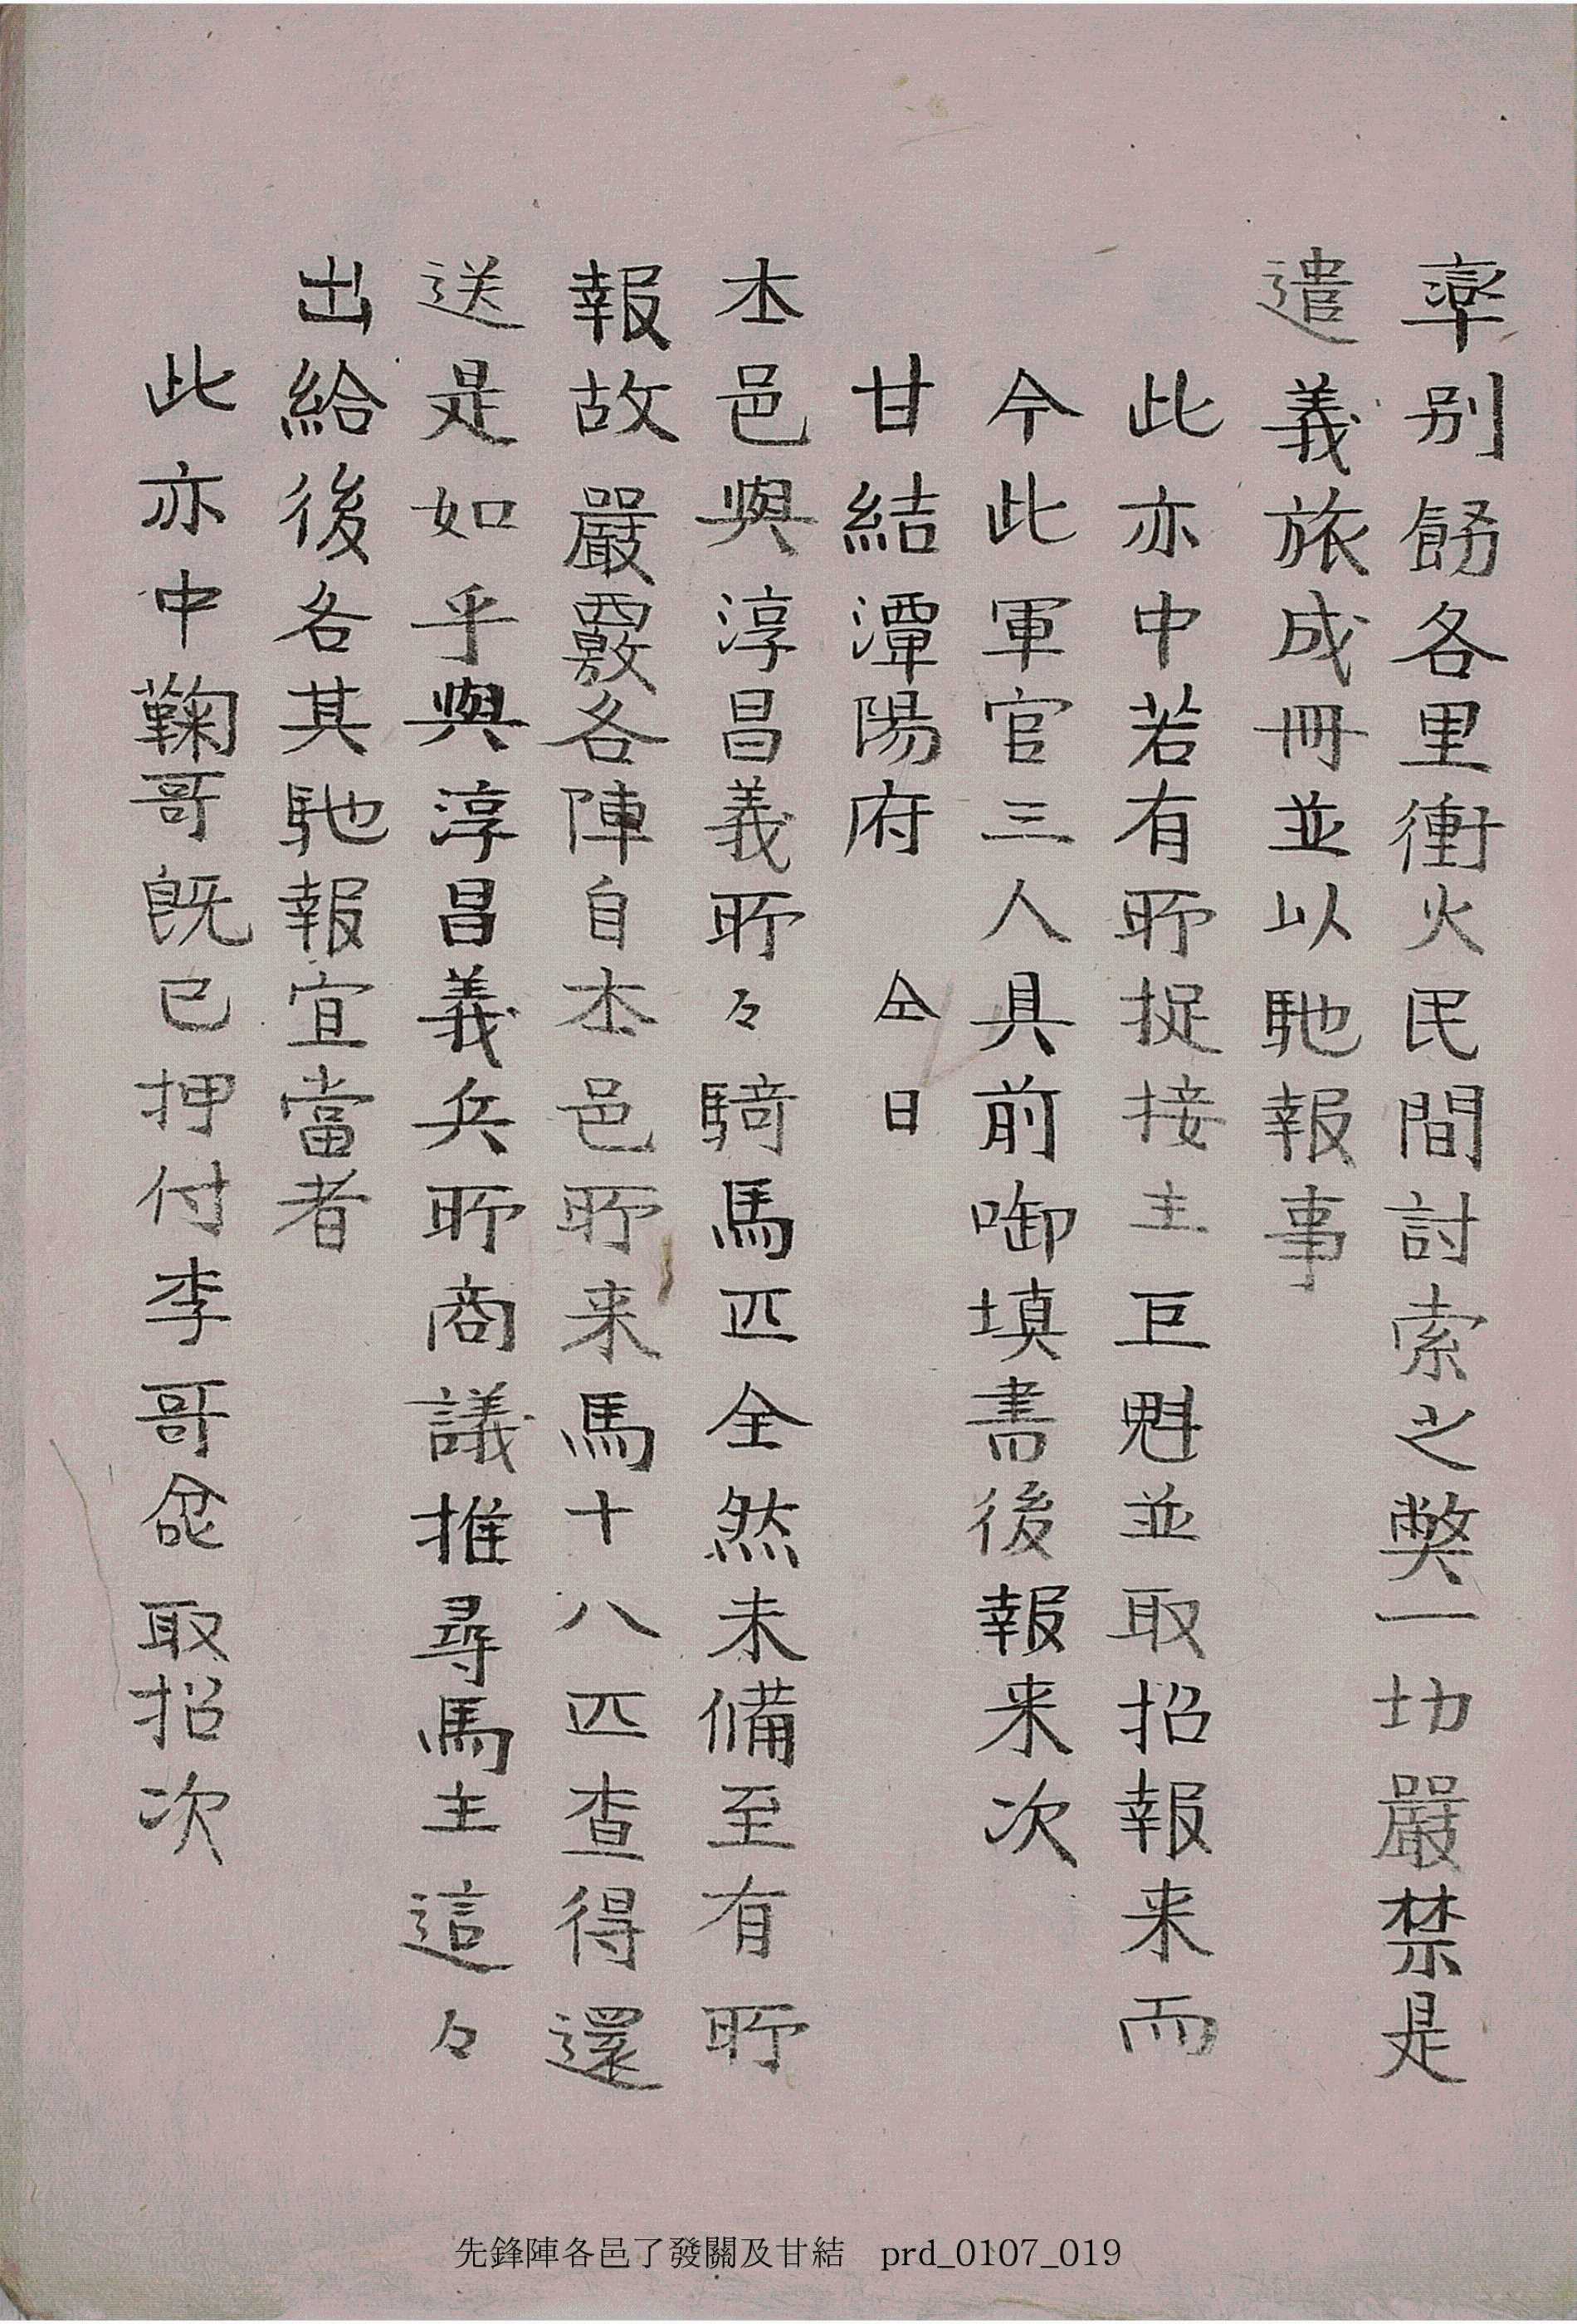 率别飭各里衝火民間討索之獘一切嚴禁是
遣義旅成冊並以馳報事
此亦中若有所捉接主巨魁並取招報来而
今此軍官三人具前啣填書後報来次
甘結潭陽府 仝日
本邑與淳昌義所々騎馬匹全然未備至有所
報故嚴覈各陣自本邑所来馬十八匹查得還
送是如乎與淳昌義兵所商議推尋馬主這々
出給後各其馳報宜當者
此亦中鞠哥既已押付李哥 取招次
先鋒陣各邑了發關及甘結 prd_0107_019